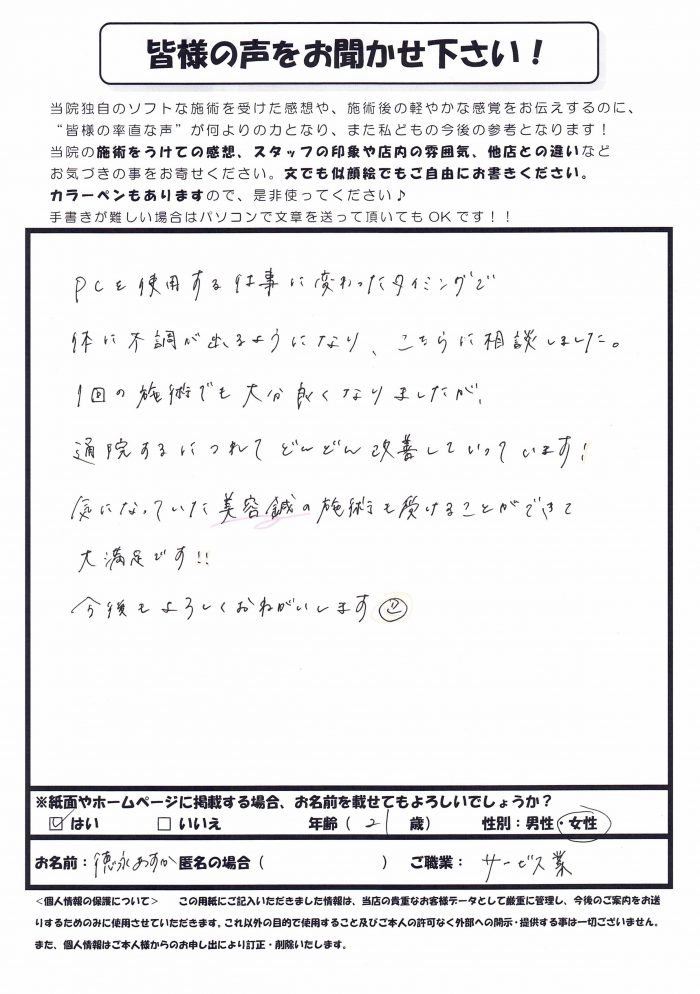 皆様の声をお聞かせ下さい！
当院独自のソフトな施術を受けた感想や、施術後の軽やかな感覚をお伝えするのに、
“皆様の率直な声”が何よりの力となり、また私どもの今後の参考となります！
当院の施術をうけての感想、スタッフの印象や店内の雰囲気、他店との違いなど
お気づきの事をお寄せください。文でも似顔絵でもご自由にお書きください。
カラーペンもありますので、是非使ってください♪
手書きが難しい場合はパソコンで文章を送って頂いてもOKです！！
PCを使用する仕事に変わったタイミングで
体に不調が出るようになり、こちらに相談しました。
1回の施術でも大分良くなりましたが、
通院するにつれてどんどん改善していっています!
気になっていた美容鍼の施術も受けることができて
大満足です!!
今後もよろしくおねがいします
※紙面やホームページに掲載する場合、お名前を載せてもよろしいでしょうか？
☑はい　□いいえ　年齢（ 21 歳）　性別：男性・女性
お名前：徳永あすか 匿名の場合（　　　）　ご職業：サービス業
<個人情報の保護について>　この用紙にご記入いただきました情報は、当店の貴重なお客様データとして厳重に管理し、今後のご案内をお送
りするためのみに使用させていただきます。これ以外の目的で使用すること及びご本人の許可なく外部への開示・提供する事は一切ございません。
また、個人情報はご本人様からのお申し出により訂正・削除いたします。